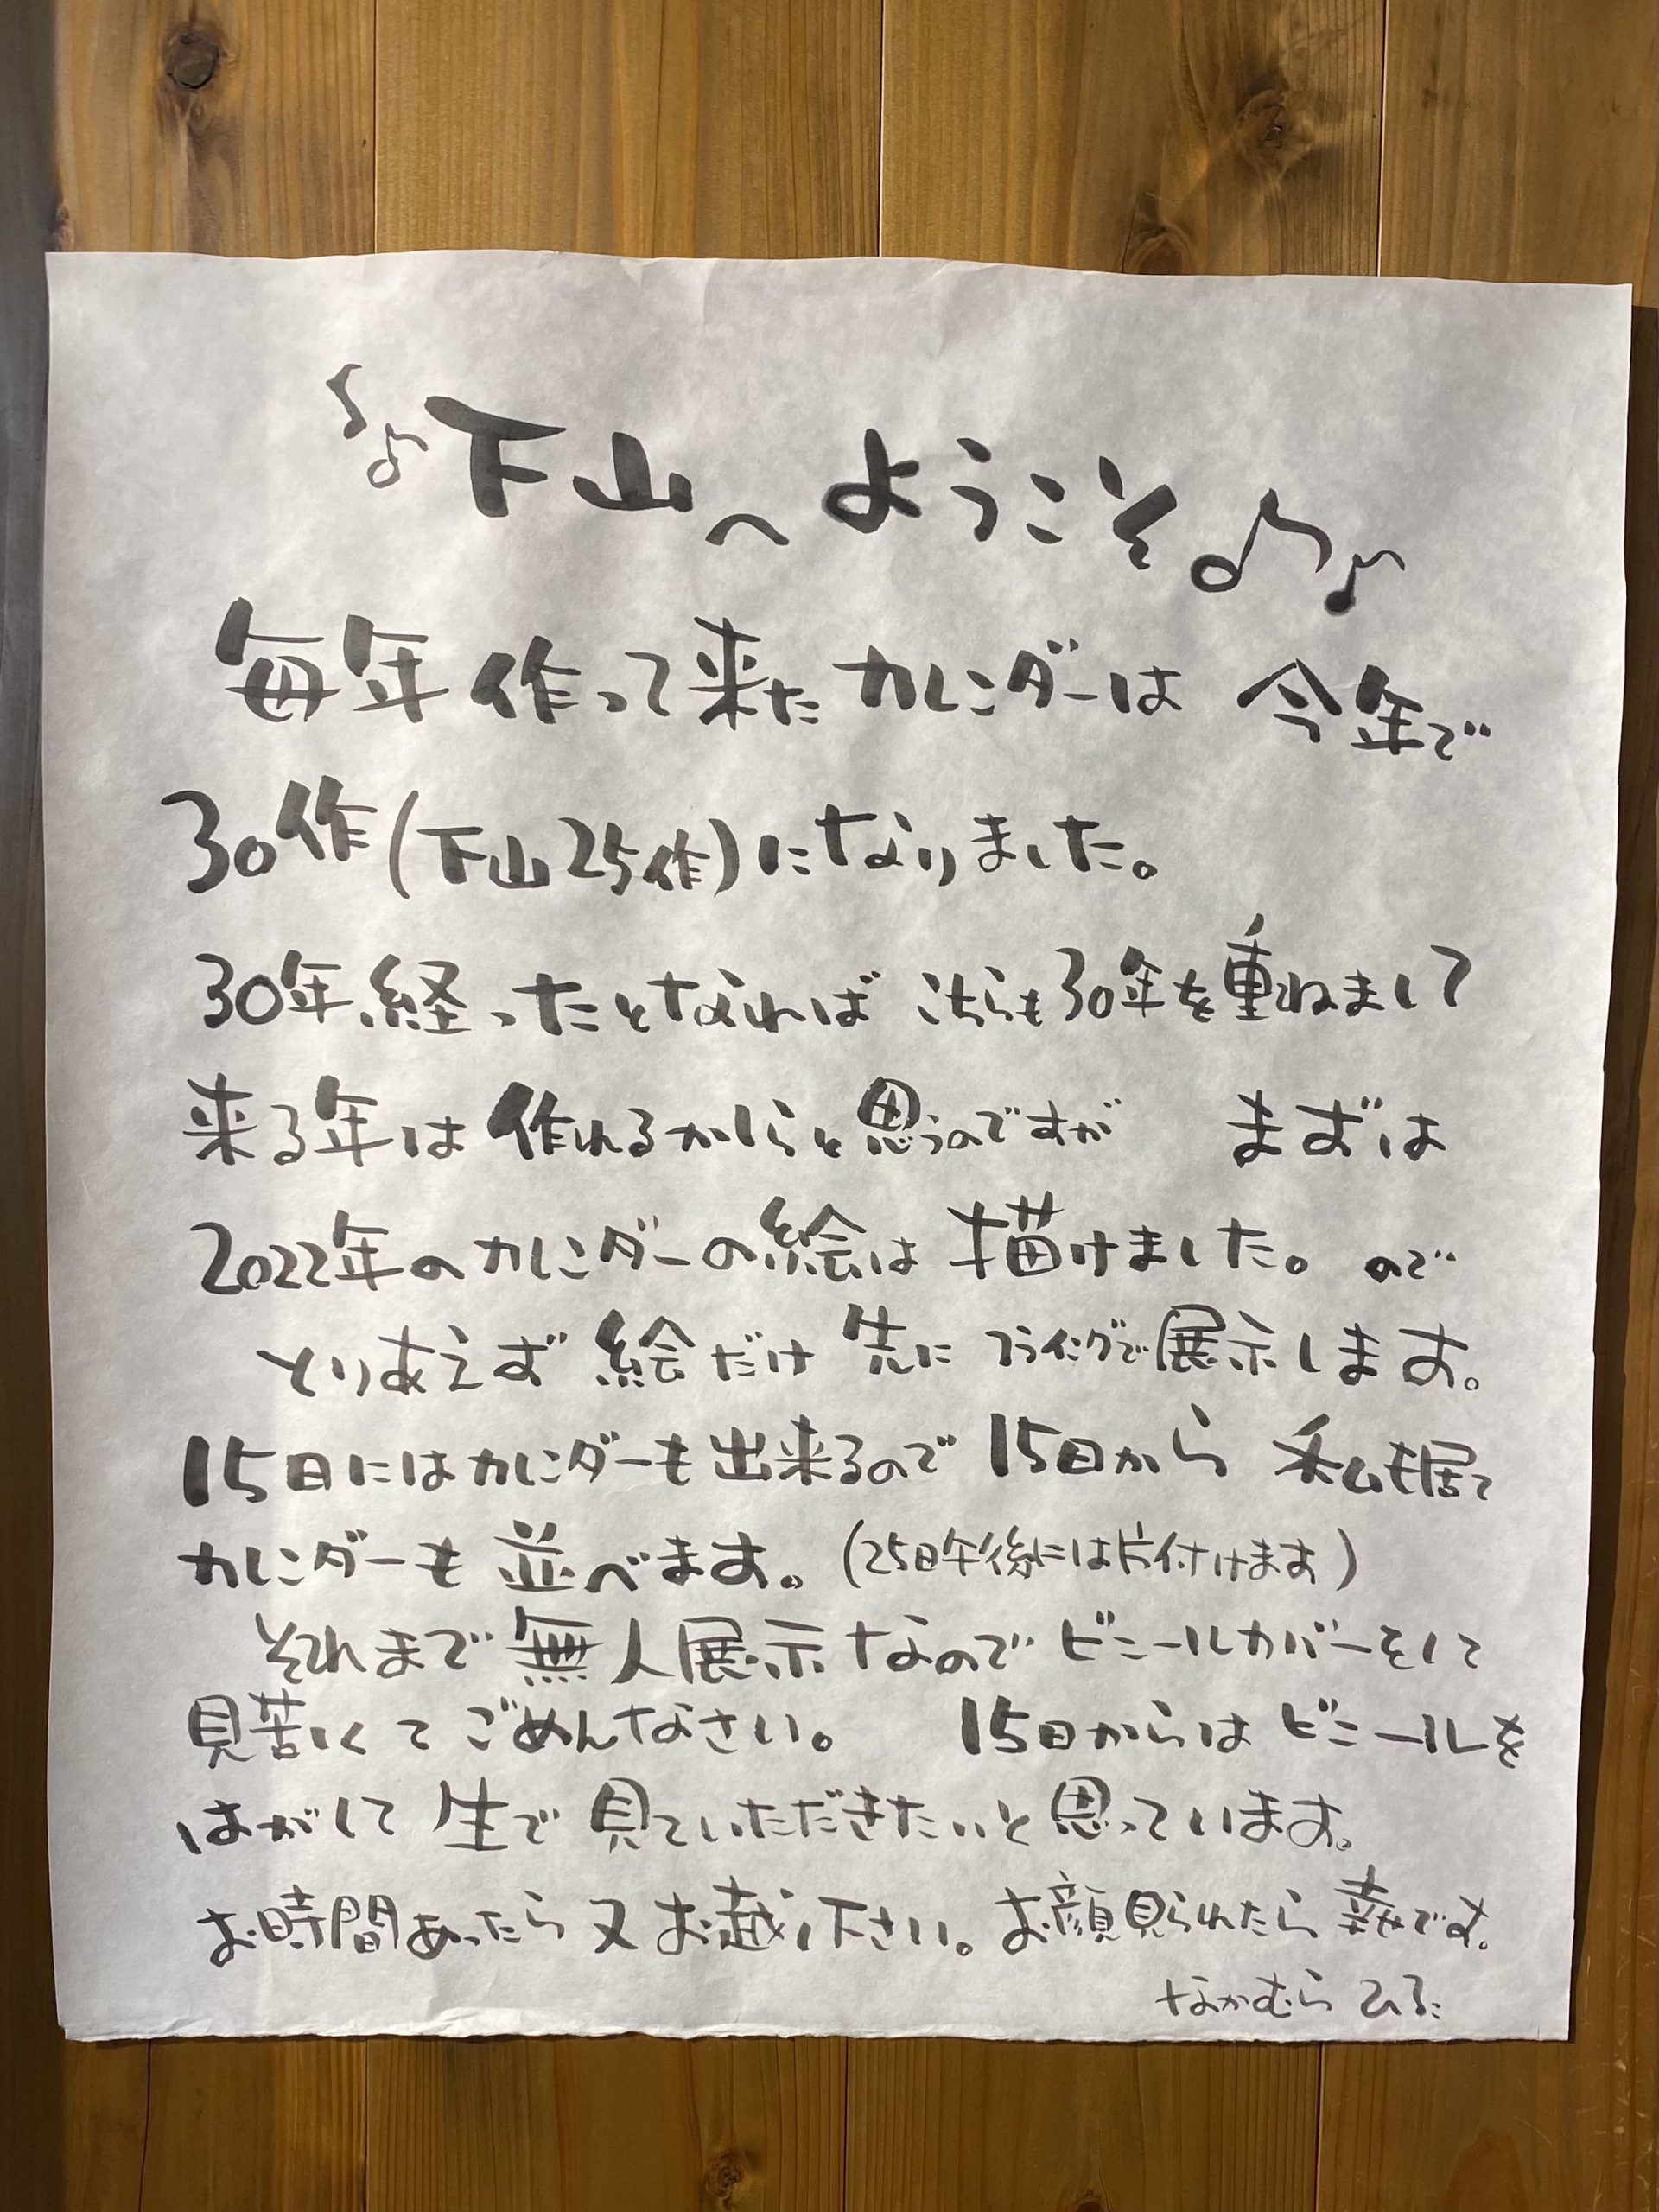 ♪下山へようこそ♪♪
毎年作って来たカレンダーは 今年で
30作(下山25作)になりました。
30年経ったとなれば こちらも30年を重ねまして
来る年は作れるかしらと思うのですが まずは
2022年のカレンダーの絵は描けました。ので
とりあえず絵だけ先にフライングで展示します。
15日にはカレンダーも出来るので 15日から 私も居て
カレンダーも並べます。(25日午後には片付けます)
それまで無人展示なのでビニールカバーをして
見苦しくてごめんなさい。 15日からはビニールを
はがして生で見ていただきたいと思っています。
お時間あったら又お越し下さい。お顔見られたら幸です。
なかむら